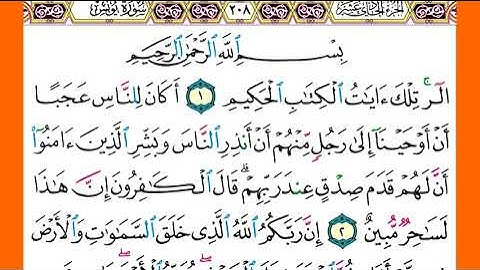 الجزء الحادي عشر ٢٠٨ سورة يونس
بِسْمِ ٱللَّهِ ٱلرَّحْمَٰنِ ٱلرَّحِيمِ
الٓر ۚ تِلْكَ ءَايَٰتُ ٱلْكِتَٰبِ ٱلْحَكِيمِ ١ أَكَانَ لِلنَّاسِ عَجَبًا
أَنْ أَوْحَيْنَآ إِلَىٰ رَجُلٍ مِّنْهُمْ أَنْ أَنذِرِ ٱلنَّاسَ وَبَشِّرِ ٱلَّذِينَ ءَامَنُوٓا۟
أَنَّ لَهُمْ قَدَمَ صِدْقٍ عِندَ رَبِّهِمْ ۗ قَالَ ٱلْكَٰفِرُونَ إِنَّ هَٰذَا
لَسَٰحِرٌ مُّبِينٌ ٢ إِنَّ رَبَّكُمُ ٱللَّهُ ٱلَّذِى خَلَقَ ٱلسَّمَٰوَٰتِ وَٱلْأَرْضَ